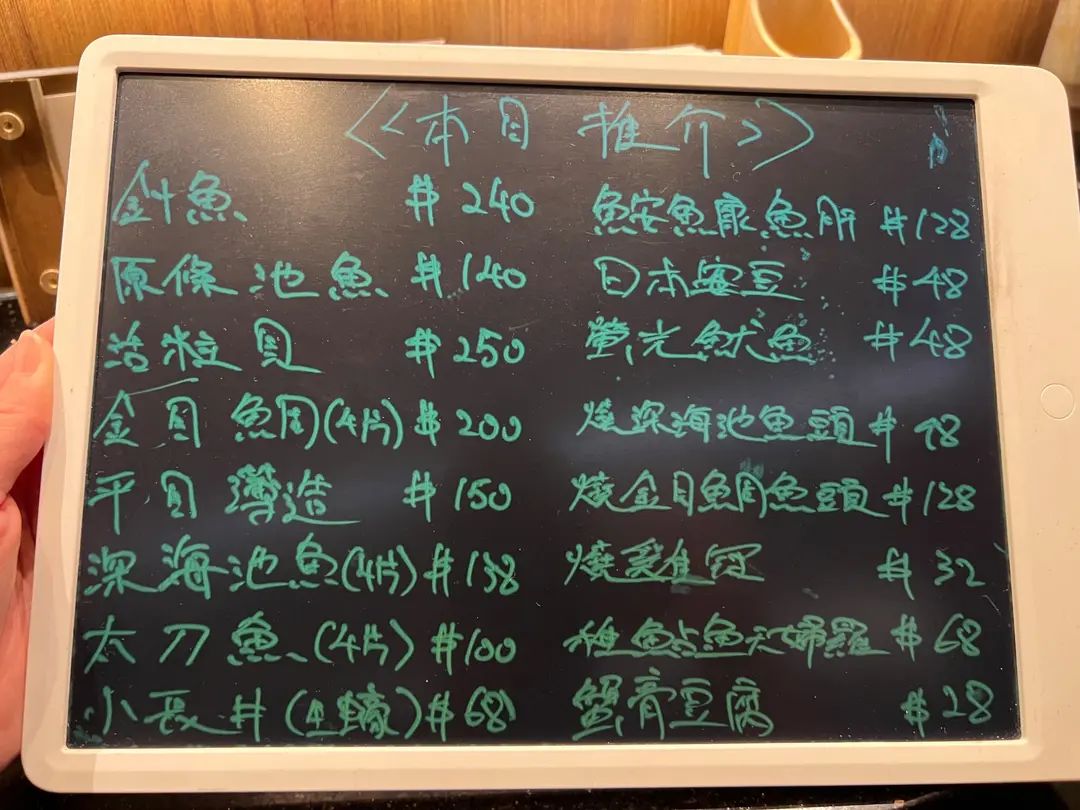 <<本日推介>>
針魚 $240
原條池魚 $140
活粒貝 $250
金目鯛(4片) $200
平目薄造 $150
深海池魚(4片) $138
太刀魚(4片) $100
小長井(生蠔) $68
鮟鱇魚肝 $128
日本蜜豆 $48
螢光魷魚 $48
燒深海池魚頭 $98
燒金目鯛魚頭 $128
燒雞 $32
稚鮎魚天婦羅 $68
蟹膏豆腐 $28